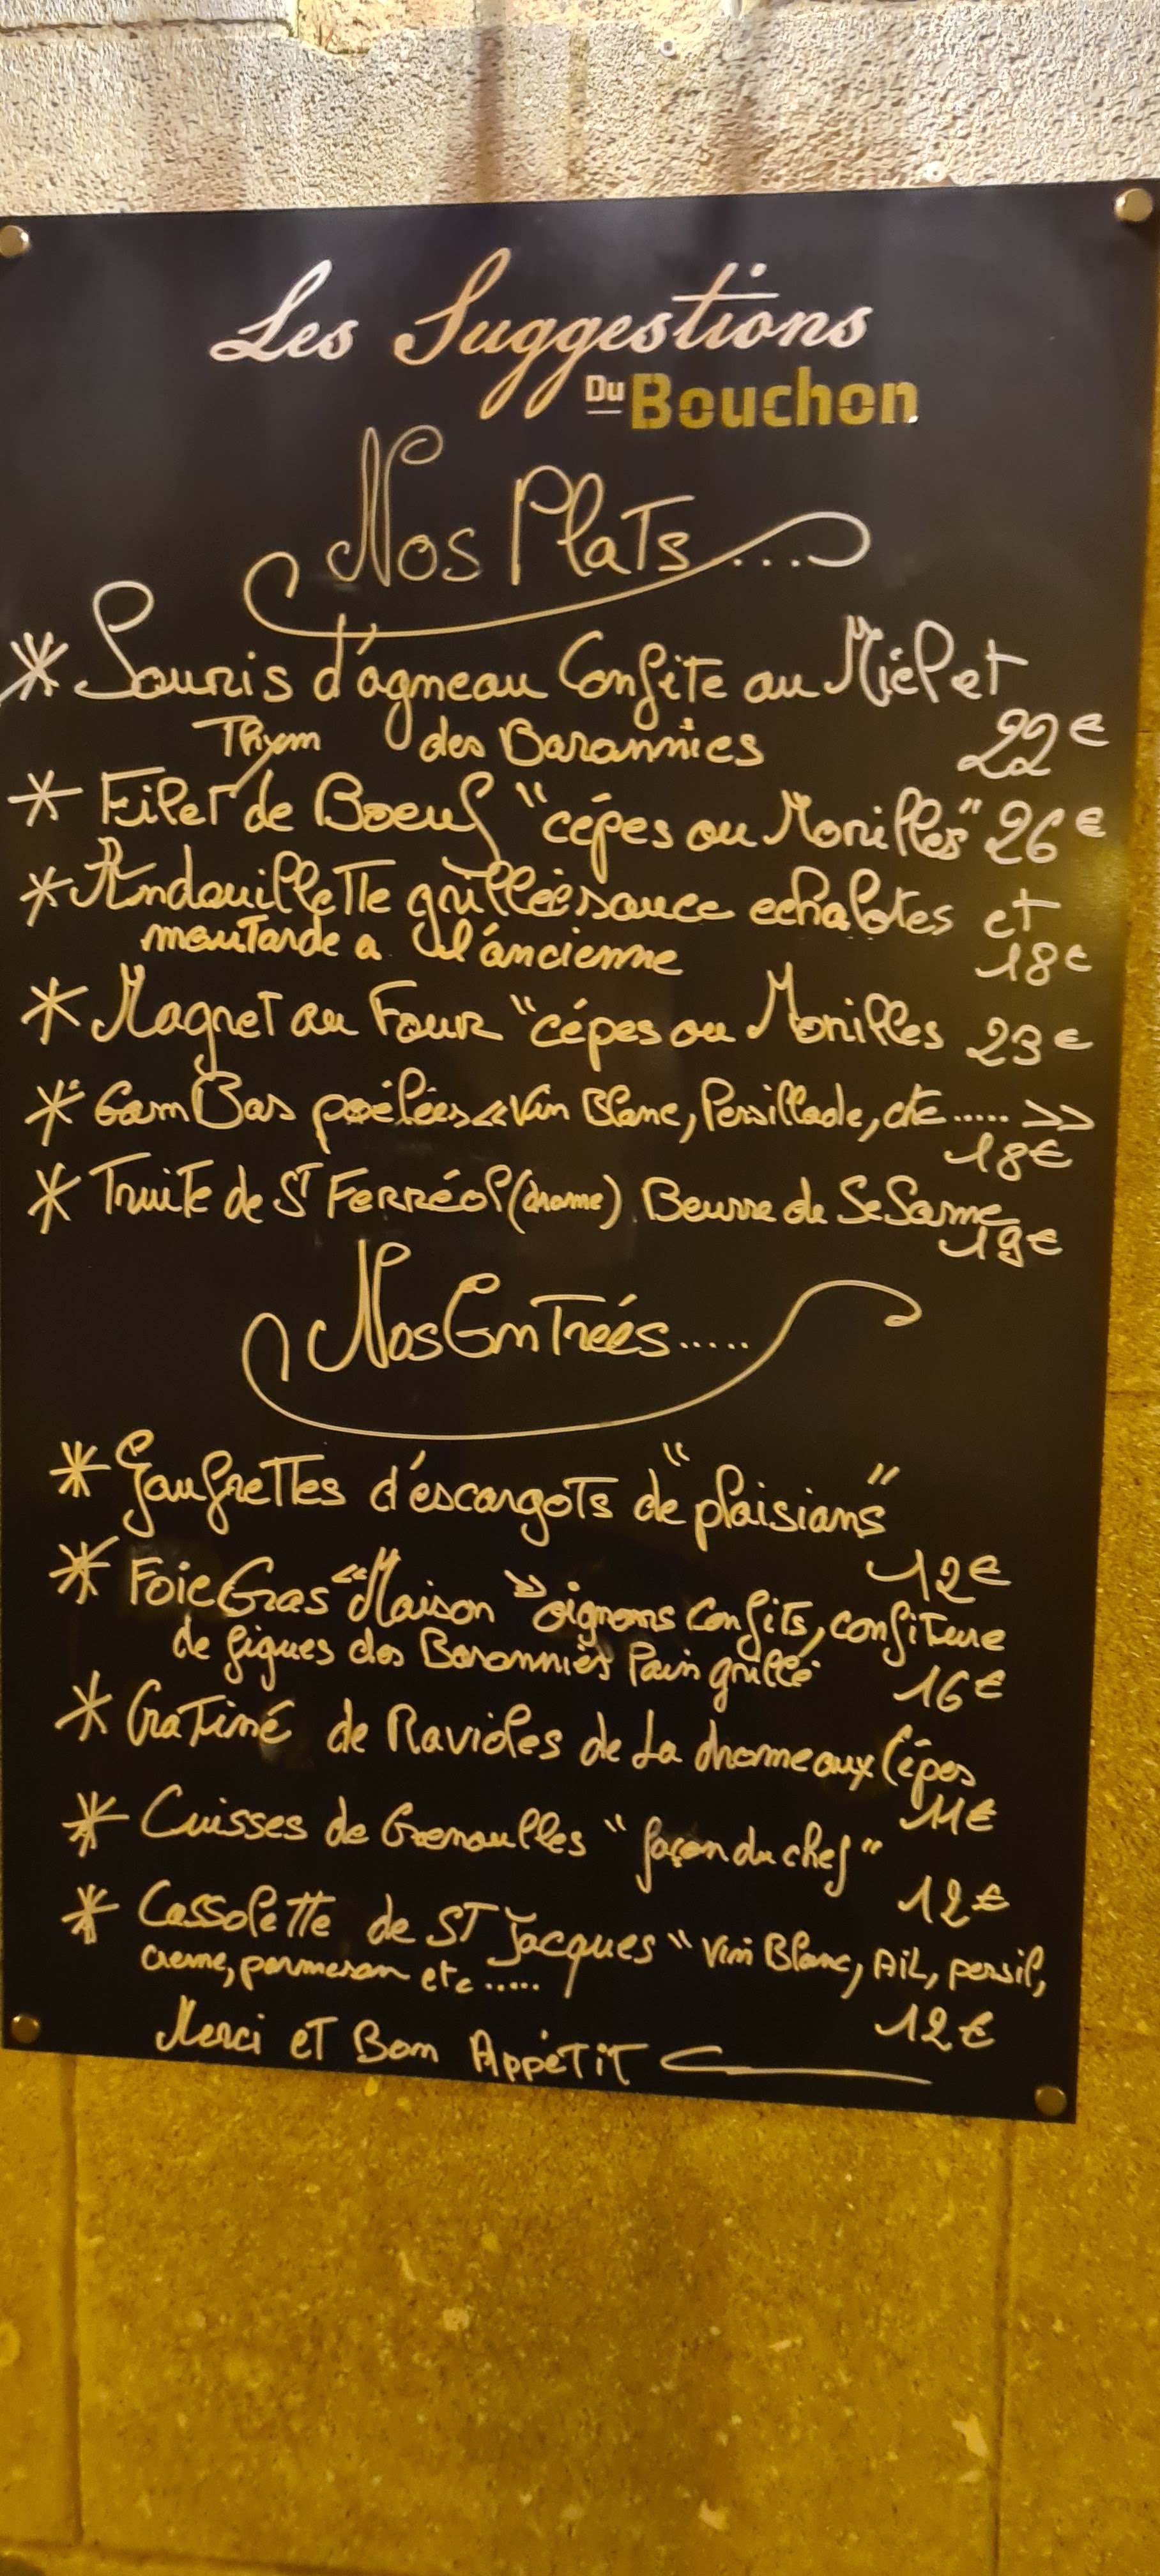 Les Suggestions
Du Bouchon
Nos Plats...
* Souris d'agneau Confite au Miel et
Thym des Baronnies 22€
* Filet de Boeuf "cépes ou Morilles" 26€
* Andouillette grillée sauce echalotes et
moutarde a l'ancienne 18€
* Magret au Four "cépes ou Morilles 23€
* GamBas poélées «Vin Blanc, Persillade, etc..... »
18€
* Truite de ST FERRéol (drome) Beurre de SeSame
19€
Nos EnTreés.....
* Gaufrettes d'éscargots de "plaisians"
12€
* Foie Gras «Maison » oignons Confits, confiture
de figues des Baronnies Pain grillé 16€
* Gratiné de Ravioles de La drome aux Cépes
11€
* Cuisses de Grenouilles "façon du chef"
12€
* Cassolette de ST Jacques "Vin Blanc, AiL, persil,
creme, parmesan etc.....
12€
Merci eT Bon AppéTiT